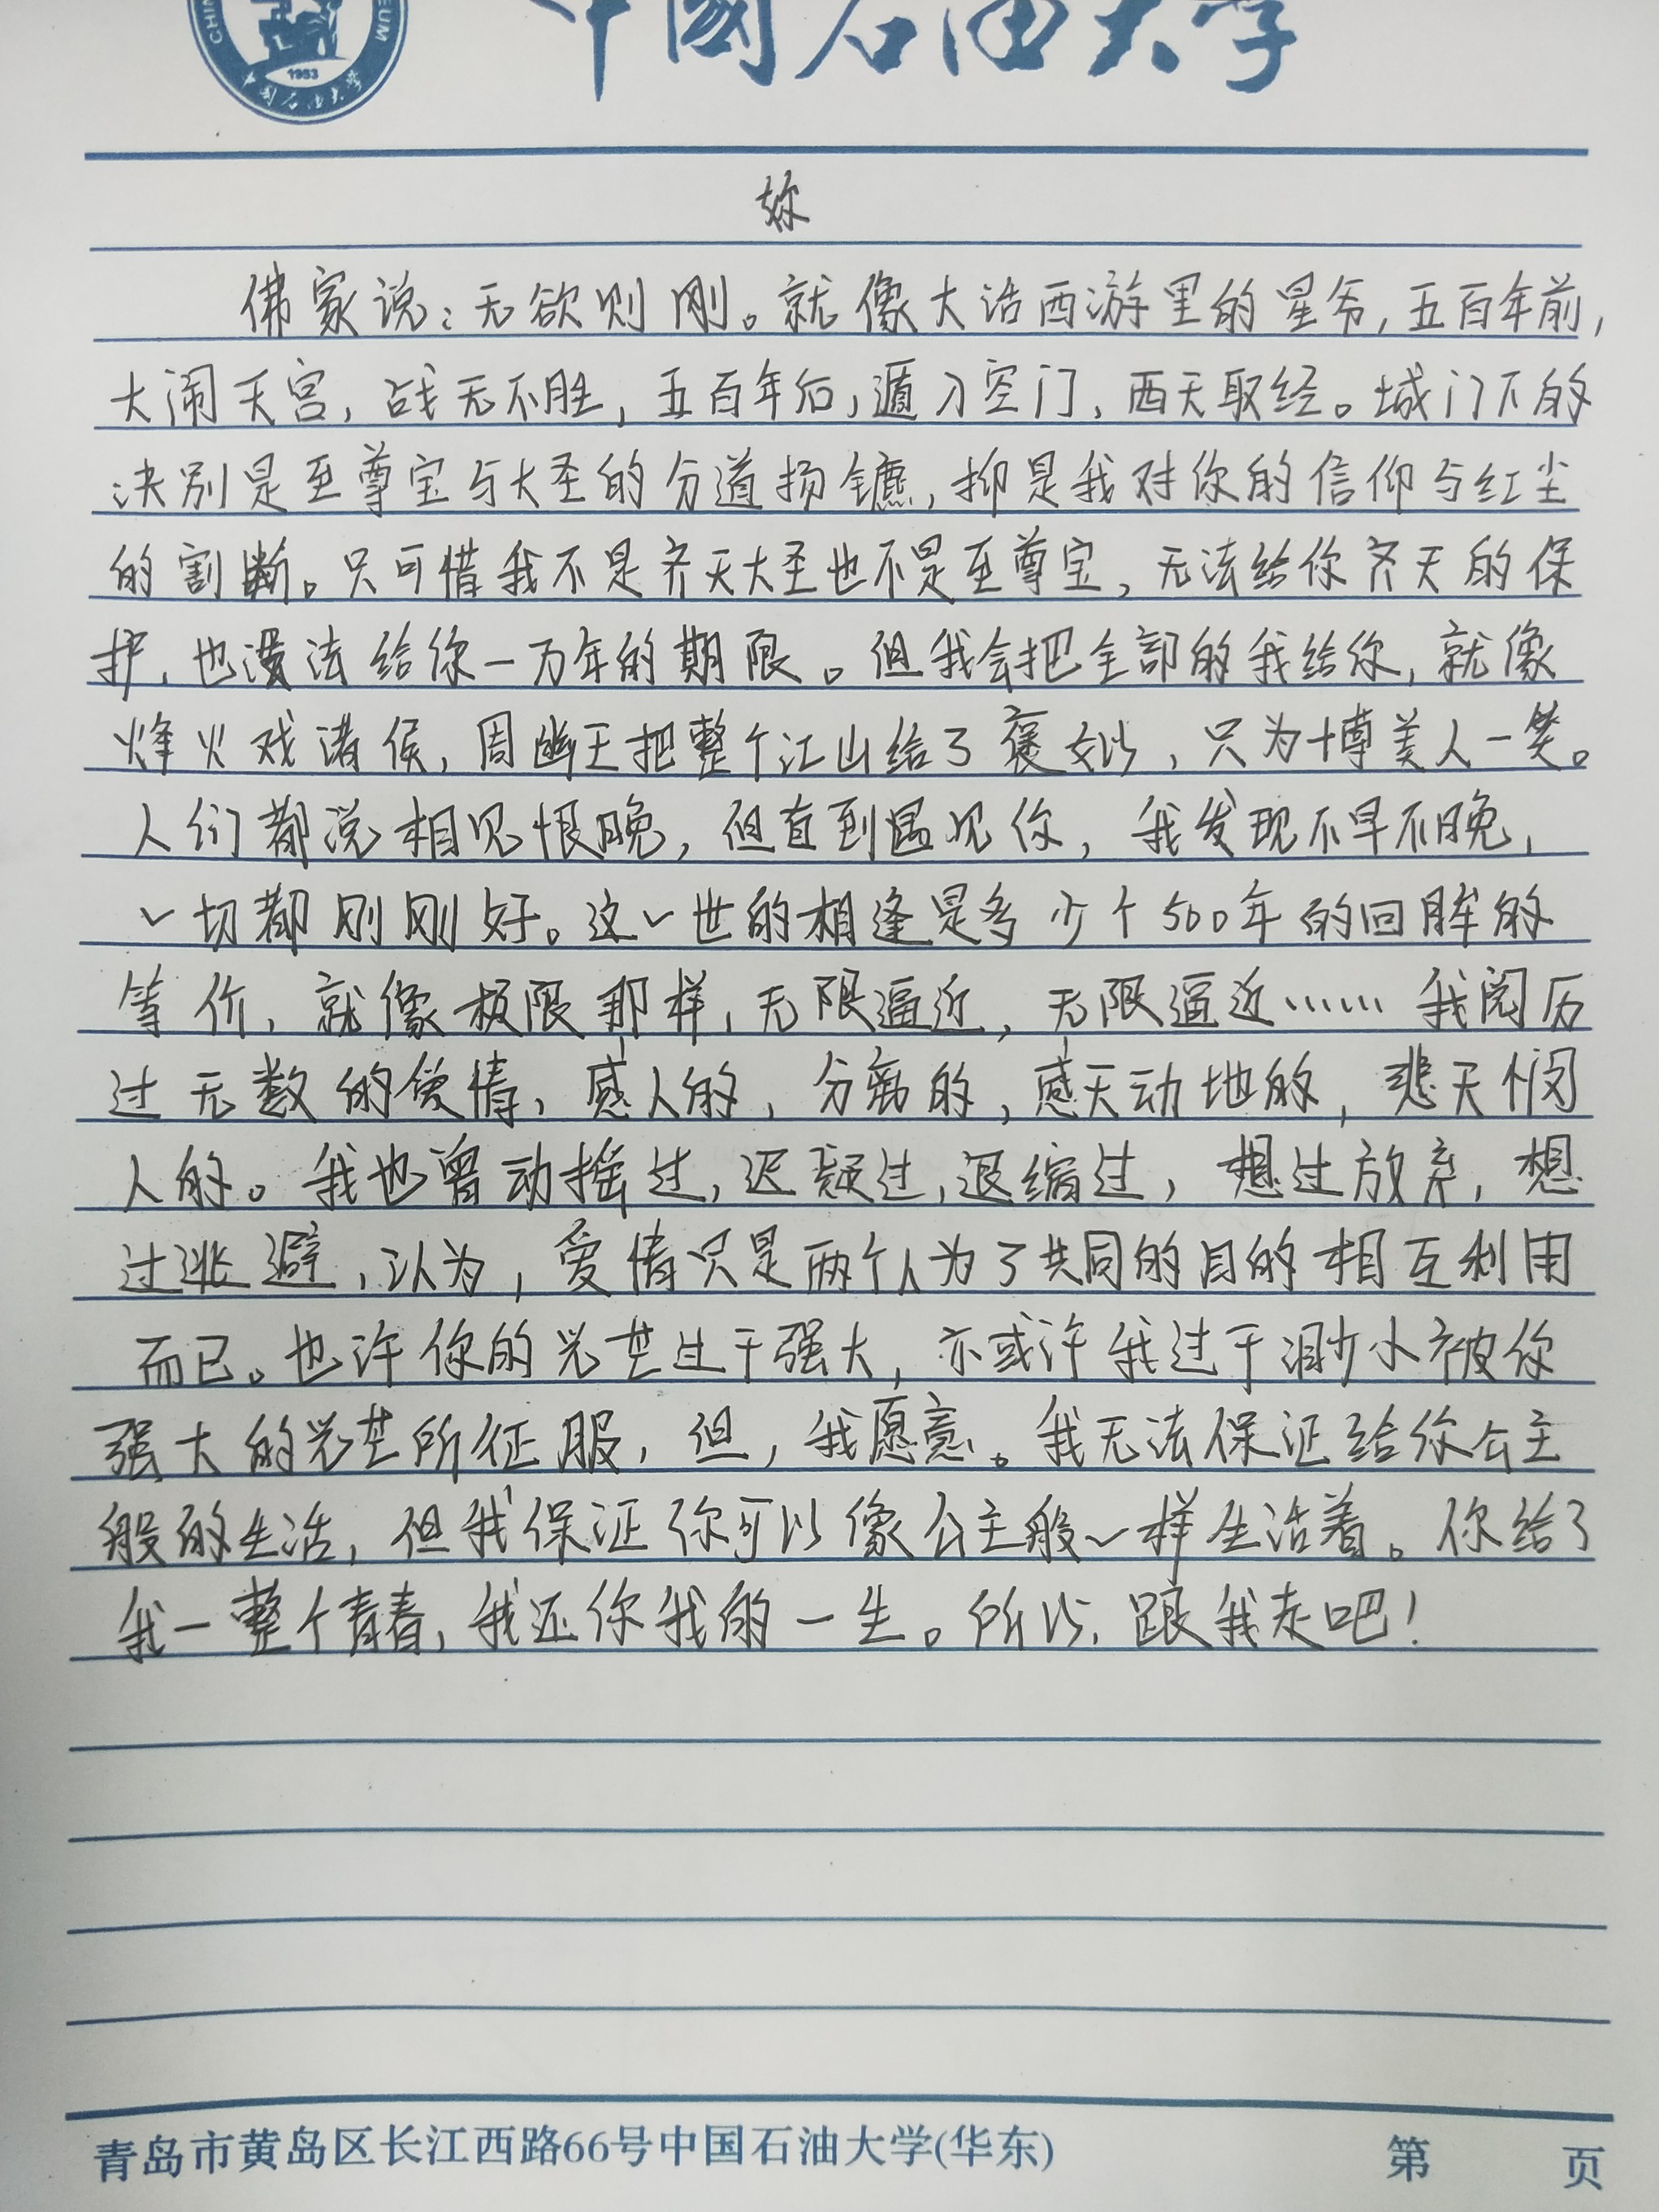 中国石油大学
1953
中国石油大学
妳
佛家说:无欲则刚。就像大话西游里的星爷,五百年前,
大闹天宫,战无不胜,五百年后,遁入空门,西天取经。城门下的
决别是至尊宝与大圣的分道扬镳,抑是我对你的信仰与红尘
的割断。只可惜我不是齐天大圣也不是至尊宝,无法给你齐天的保
护,也没法给你一万年的期限。但我会把全部的我给你,就像
烽火戏诸侯,周幽王把整个江山给了褒姒,只为博美人一笑。
人们都说相见恨晚,但直到遇见你,我发现不早不晚,
一切都刚刚好。这一世的相逢是多少个500年的回眸的
等价,就像极限那样,无限逼近,无限逼近……我阅历
过无数的爱情,感人的,分离的,感天动地的,悲天悯
人的。我也曾动摇过,迟疑过,退缩过,想过放弃,想
过逃避,认为,爱情只是两个人为了共同的目的相互利用
而已。也许你的光芒过于强大,亦或许我过于渺小被你
强大的光芒所征服,但,我愿意。我无法保证给你公主
般的生活,但我保证你可以像公主般一样生活着。你给了
我一整个青春,我还你我的一生。所以,跟我走吧!
青岛市黄岛区长江西路66号中国石油大学(华东) 第 页